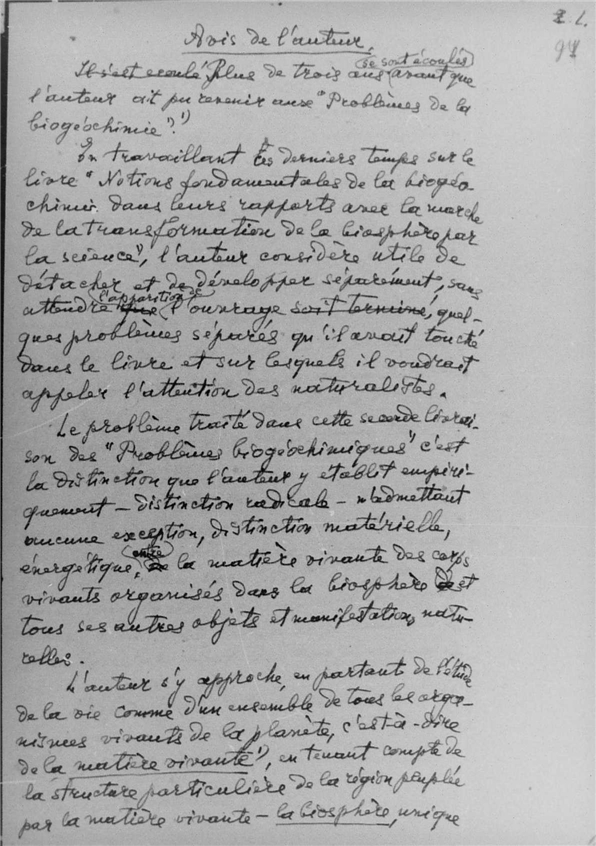 1.
97
Avis de l'auteur.
se sont écoulés
Il s'est ecoulé Plus de trois ans avant que
l'auteur ait pu revenir aux "Problèmes de la
biogéochimie".¹)
En travaillant ces derniers temps sur le
livre "Notions fondamentales de la biogéo-
chimie dans leurs rapports avec la marche
de la transformation de la biosphère par
la science", l'auteur considère utile de
détacher et de développer séparément, sans
l'apparition de
attendre que l'ouvrage soit terminé, quel-
ques problèmes séparés qu'il avait touché
dans le livre et sur lesquels il voudrait
appeler l'attention des naturalistes.
Le problème traité dans cette seconde livrai-
son des "Problèmes biogéochimiques" c'est
la distinction que l'auteur y établit empiri-
quement – distinction radicale – n'admettant
aucune exception, distinction matérielle,
entre
énergétique, la matière vivante des corps
vivants organisés dans la biosphère et
tous ses autres objets et manifestations natu-
relles.
L'auteur s'y approche, en partant de l'étude
de la vie comme d'un ensemble de tous les orga-
nismes vivants de la planète, c'est-à-dire
de la matière vivante¹), en tenant compte de
la structure particulière de la région peuplée
par la matière vivante – la biosphère, unique